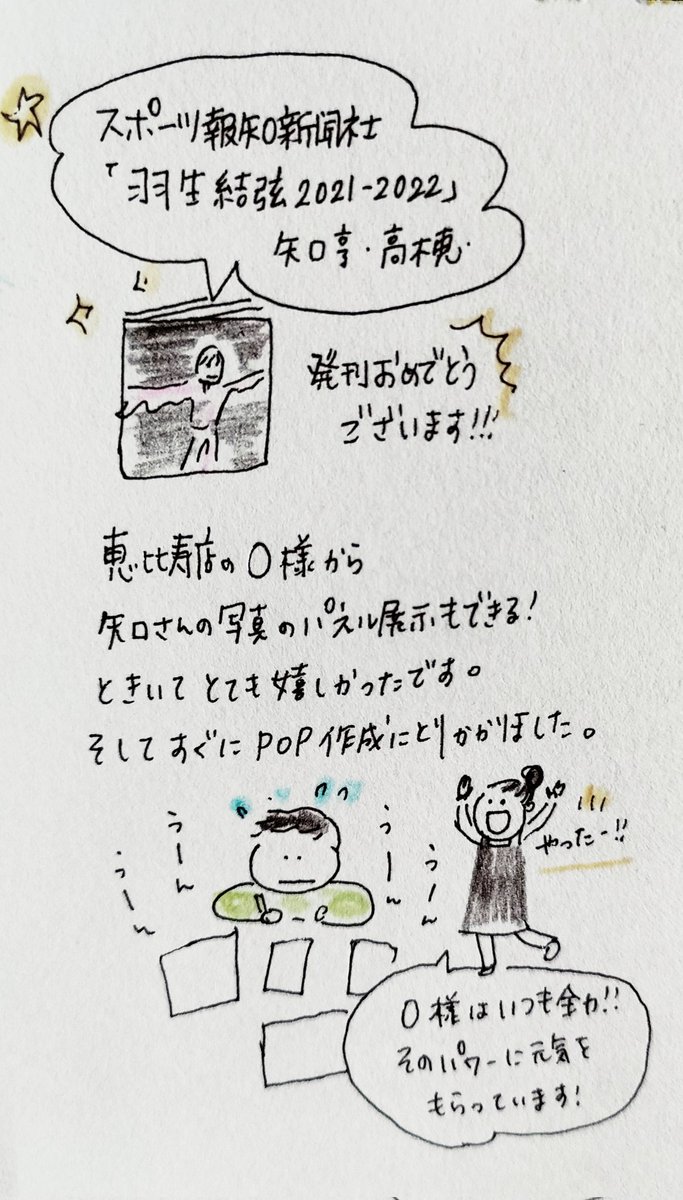 スポーツ報知新聞社
「羽生結弦2021-2022」
矢口亨・高木恵
発刊おめでとう
ございます!!!
恵比寿店のO様から
矢口さんの写真のパネル展示もできる!
ときいてとても嬉しかったです。
そしてすぐにPOP作成にとりかかりました。
うーん
うーん
うーん
うーん
やったー!!
O様はいつも全力!!
そのパワーに元気を
もらっています!